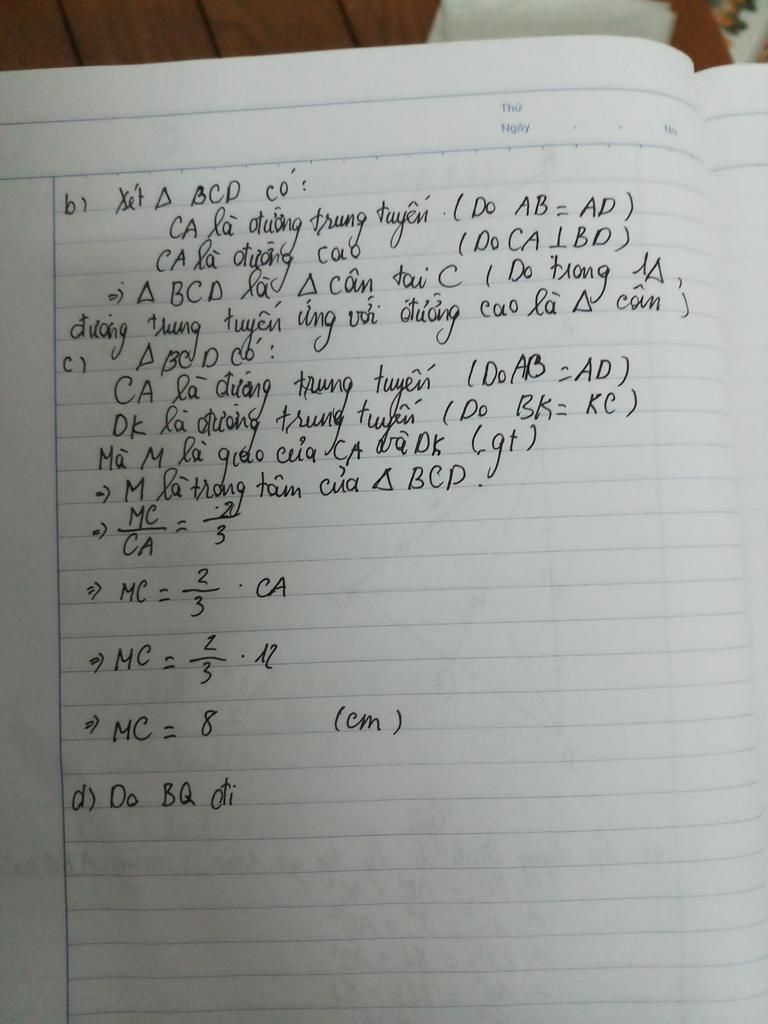 Thứ
Ngày . . No
b) Xét Δ BCD có:
CA là đường trung tuyến. (Do AB = AD)
CA là đường cao (Do CA ⊥ BD)
⇒ Δ BCD là Δ cân tại C (Do trong 1Δ,
đường trung tuyến ứng với đường cao là Δ cân)
c) Δ BCD có:
CA là đường trung tuyến (Do AB = AD)
DK là đường trung tuyến (Do BK = KC)
Mà M là giao của CA và DK (gt)
⇒ M là trọng tâm của Δ BCD.
⇒ MC/CA = 2/3
⇒ MC = 2/3 . CA
⇒ MC = 2/3 . 12
⇒ MC = 8 (cm)
d) Do BQ đi